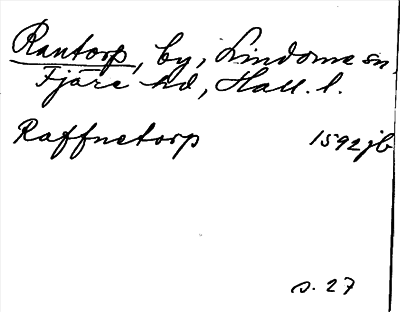 Rantorp, by, Lindome sn,
Fjäre hd, Hall. l.
Raffnetorp 1592 jb
s. 27